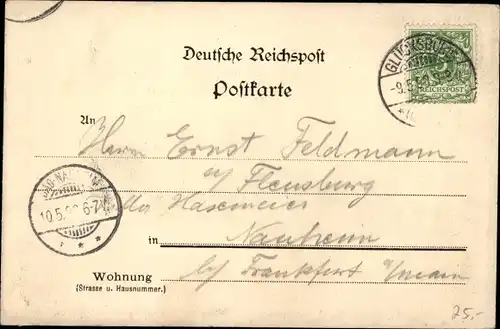 Deutsche Reichspost
Postkarte
GLÜCKSBURG
-9.5.
REICHSPOST
An
Herrn Ernst Feldmann
a/ Flensburg
BAD-NAUHEIM
10.5. 6-7
Villa Hasemeier
in Nauheim
Wohnung
(Strasse u. Hausnummer.)
b/ Frankfurt a/main
25,-